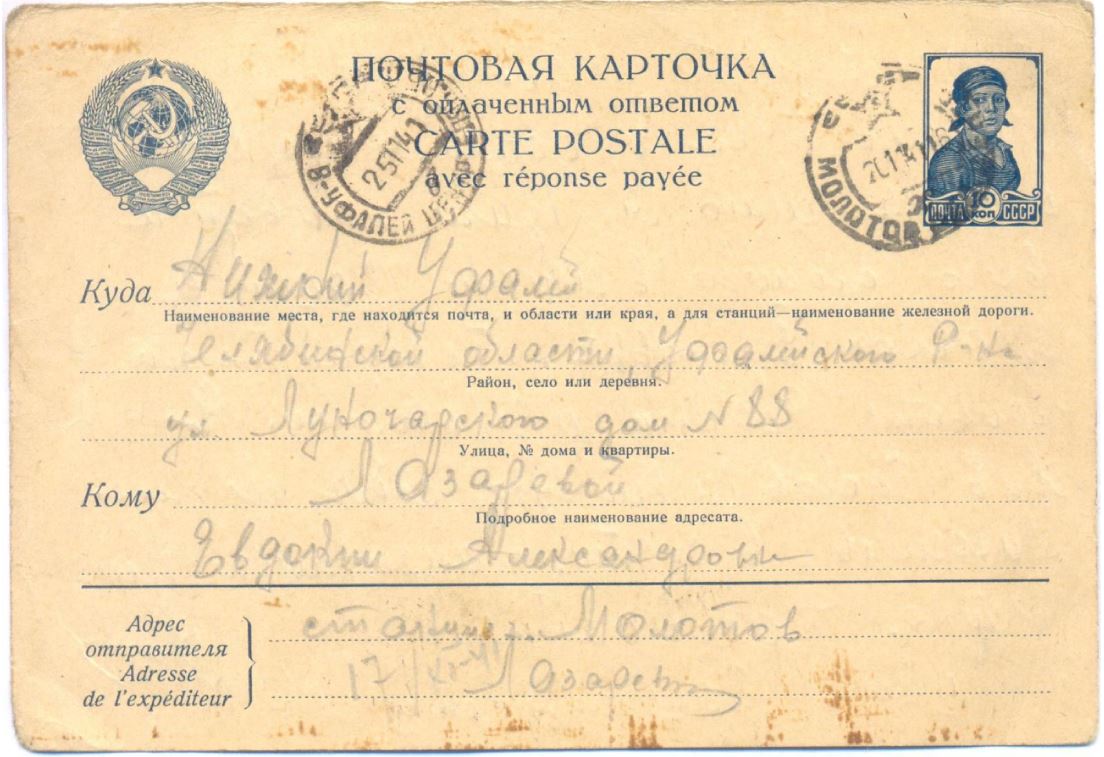 ПОЧТОВАЯ КАРТОЧКА
с оплаченным ответом
CARTE POSTALE
avec réponse payée
В-УФАЛЕЙ
МОЛОТОВ
ПОЧТА 10 КОП СССР
Куда Нижний Уфалей
Наименование места, где находится почта, и области или края, а для станций—наименование железной дороги.
Челябинской области, Уфалейского р-на
Район, село или деревня.
ул. Луночарского дом N 88
Улица, № дома и квартиры.
Кому Лазаревой
Подробное наименование адресата.
Евдокии Александровы
Адрес
отправителя
Adresse
de l'expéditeur
Молотов
17